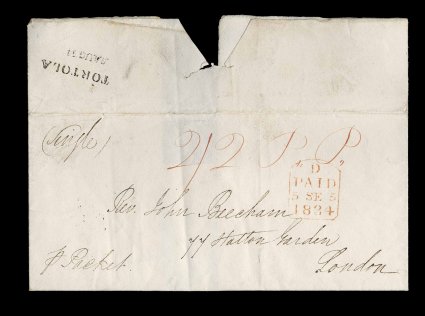 TORTOLA
AUG
(Single)
2/2 P P
D
PAID
5 SE 5
1834
Rev. John Beecham
77 Hatton Garden
London
p Packet.